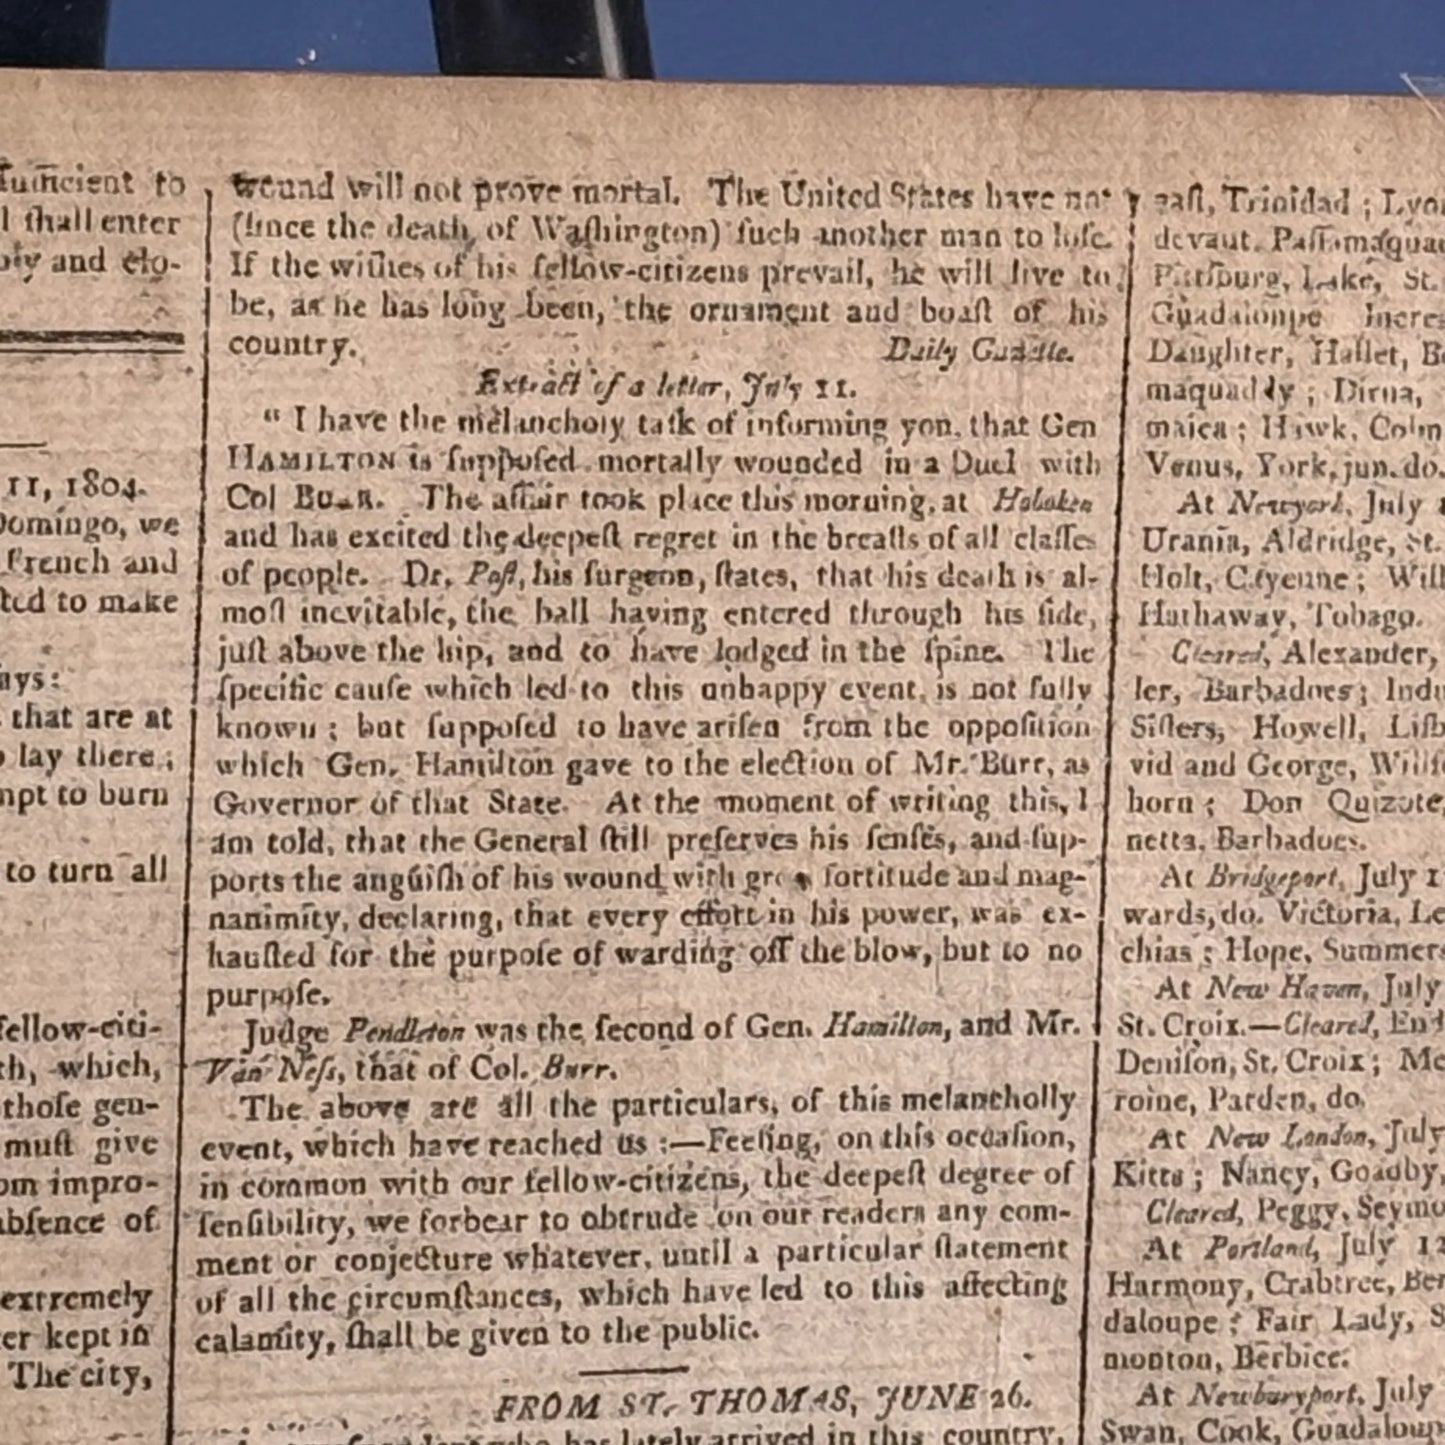 ſufficient to
l ſhall enter
and elo-
11, 1804.
Domingo, we
French and
ted to make
ays:
that are at
lay there;
mpt to burn
to turn all
fellow-citi-
th, which,
thoſe gen-
muſt give
om impro-
abſence of
extremely
er kept in
The city,
wound will not prove mortal. The United States have not
(ſince the death of Waſhington) ſuch another man to loſe.
If the wiſhes of his fellow-citizens prevail, he will live to
be, as he has long been, the ornament and boaſt of his
country. Daily Gazette.
Extract of a letter, July 11.
“ I have the melancholy taſk of informing you, that Gen
HAMILTON is ſuppoſed mortally wounded in a Duel with
Col BURR. The affair took place this morning, at Hoboken
and has excited the deepeſt regret in the breaſts of all claſſes
of people. Dr. Poſt, his ſurgeon, ſtates, that his death is al-
moſt inevitable, the ball having entered through his ſide,
juſt above the hip, and to have lodged in the ſpine. The
ſpecific cauſe which led to this unhappy event, is not fully
known; but ſuppoſed to have ariſen from the oppoſition
which Gen. Hamilton gave to the election of Mr. Burr, as
Governor of that State. At the moment of writing this, I
am told, that the General ſtill preſerves his ſenſes, and ſup-
ports the anguiſh of his wound with fortitude and mag-
nanimity, declaring, that every effort in his power, was ex-
hauſted for the purpoſe of warding off the blow, but to no
purpoſe.
Judge Pendleton was the ſecond of Gen. Hamilton, and Mr.
Van Neſs, that of Col. Burr.
The above are all the particulars, of this melancholly
event, which have reached us :—Feeling, on this occaſion,
in common with our fellow-citizens, the deepeſt degree of
ſenſibility, we forbear to obtrude on our readers any com-
ment or conjecture whatever, until a particular ſtatement
of all the circumſtances, which have led to this affecting
calamity, ſhall be given to the public.
FROM ST. THOMAS, JUNE 26.
who has lately arrived in this country,
eaſt, Trinidad; Lyon
devaut. Paſſamaquad
Pittſburg, Lake, St.
Daughter, Hallet,
maica; Hawk,
Venus, York, jun. do.
At Newyork, July
Urania, Aldridge, St.
Holt, Cayenne; Will
Hathaway, Tobago.
Cleared, Alexander,
ler, Barbadoes; Indu
Siſters, Howell, Liſb
vid and George,
horn; Don Quizote,
netta, Barbadoes.
At Bridgeport, July 1
wards, do. Victoria, Le
chias; Hope, Summers
At New Haven, July
St. Croix.—Cleared, End
Deniſon, St. Croix; Me
roine, Parden, do.
At New London, July
Kitts; Nancy, Goadby,
Cleared, Peggy, Seymo
At Portland, July 12
Harmony, Crabtree, Ber
daloupe; Fair Lady, S
monton, Berbice.
At Newburyport, July
Swan, Cook, Guadaloup